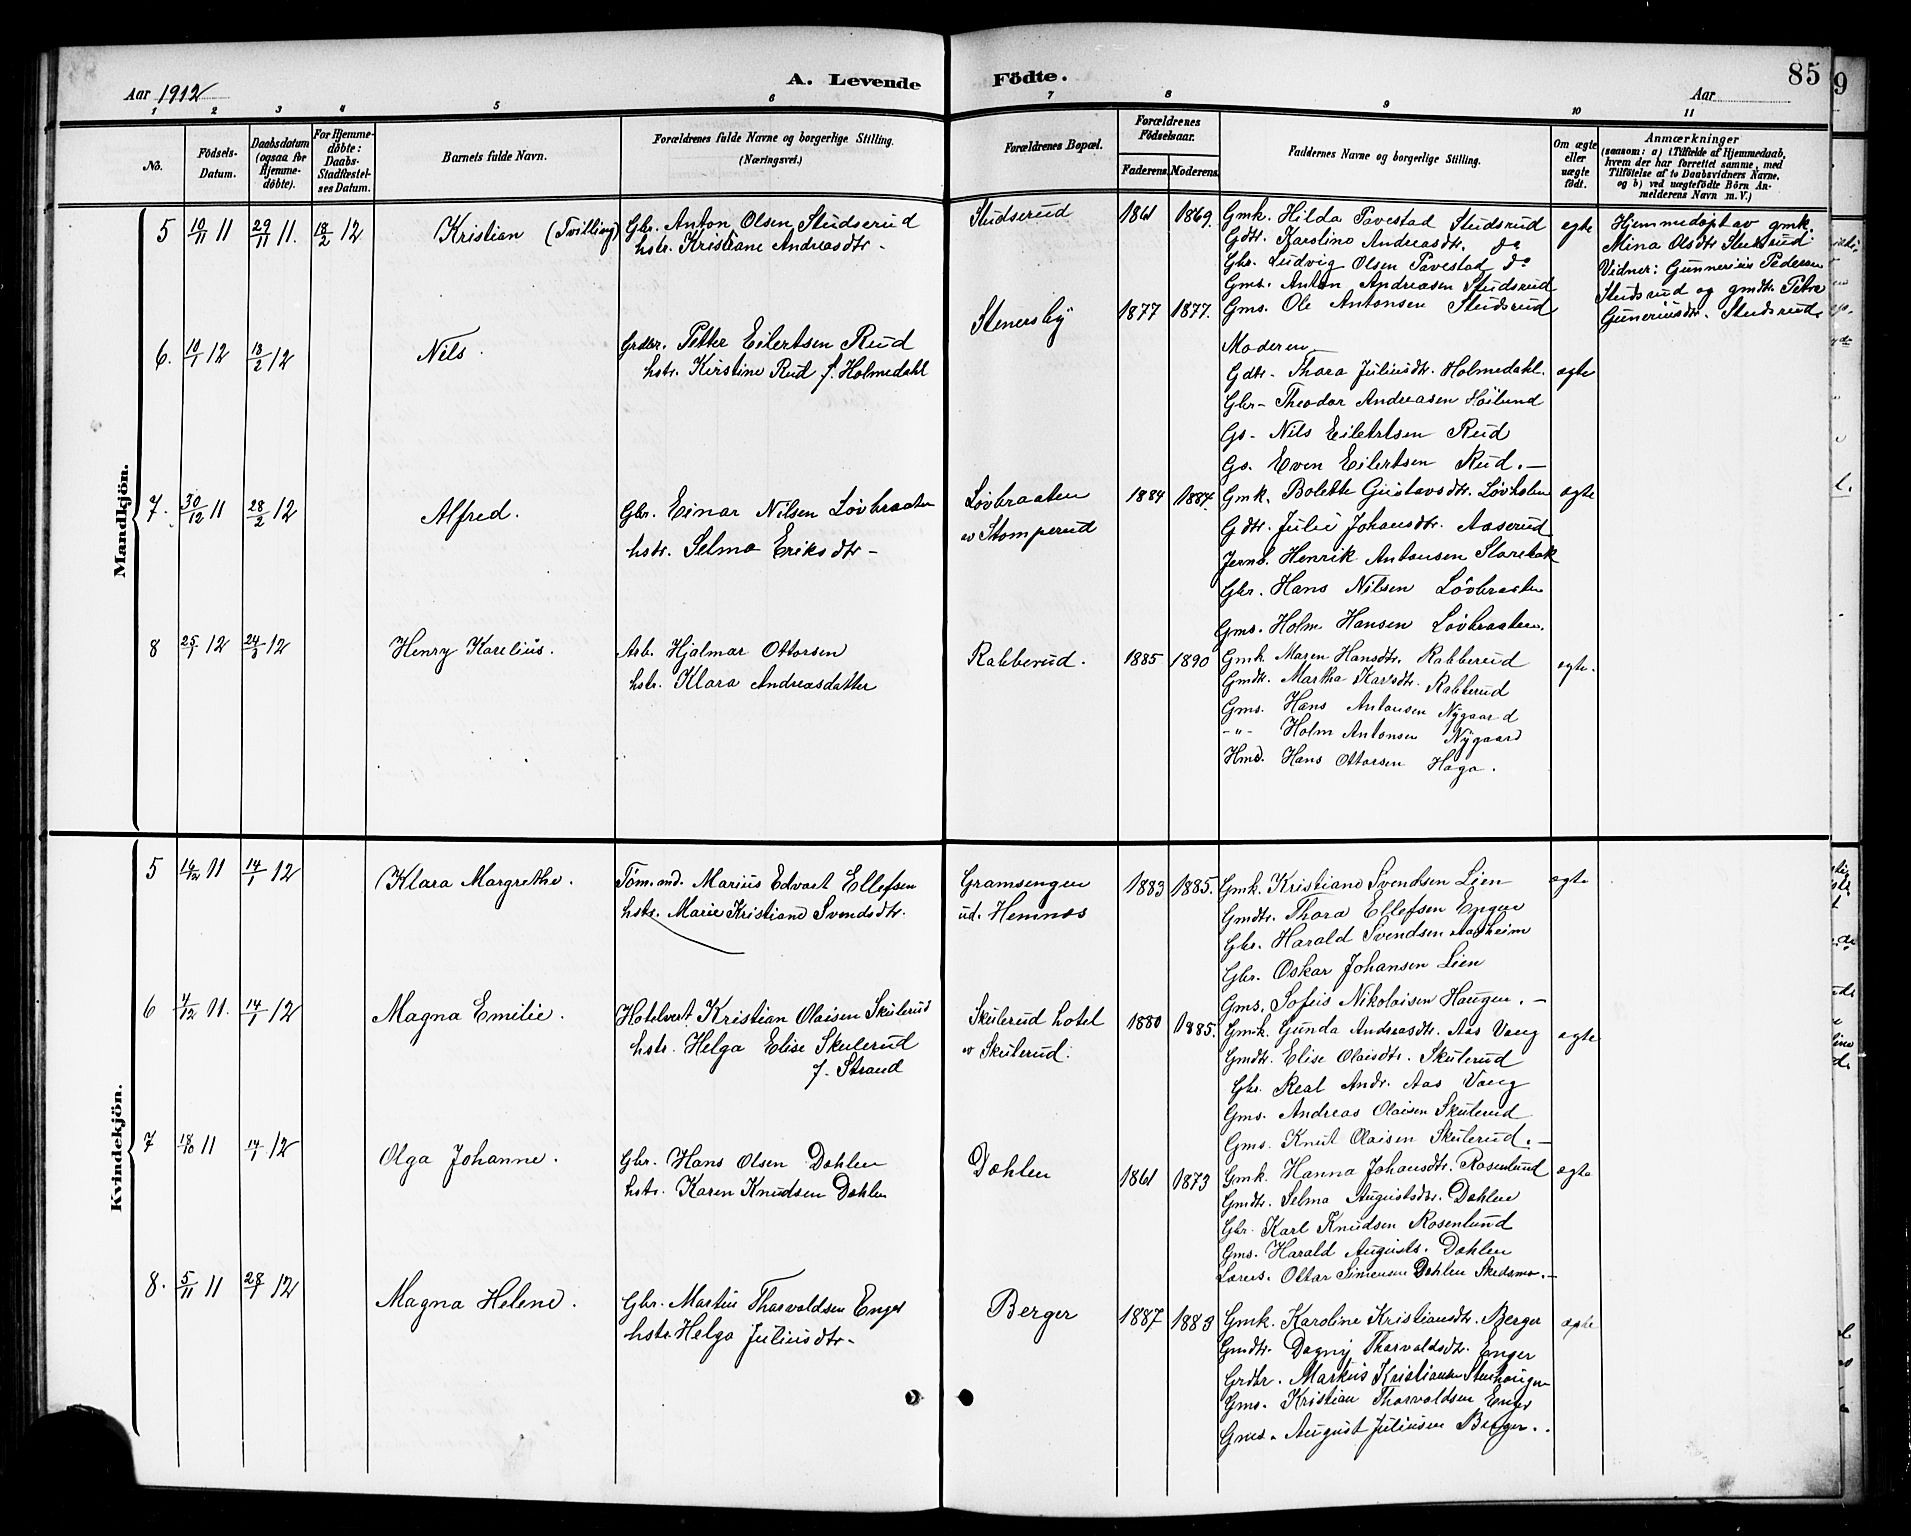 A. Levende Födte.
85
Aar 1912
Aar
1 2 3 4 5 6 7 8 9 10 11
No.
Födsels-Datum.
Daabsdatum (ogsaa for Hjemmedöbte).
For Hjemmedöbte: Daabs-Stadfæstelses Datum.
Barnets fulde Navn.
Forældrenes fulde Navne og borgerlige Stilling.
(Næringsvei.)
Forældrenes Bopæl.
Forældrenes Födselsaar.
Faderens. Moderens.
Faddernes Navne og borgerlige Stilling.
Om ægte eller uægte födt.
Anmærkninger
(saasom: a) i Tilfælde af Hjemmedaab,
hvem der har forrettet samme, med
Tilföielse af to Daabsvidners Navne,
og b) ved uægtefödte Börn Anmelderens Navn m. V.)
Mandkjön.
5 10/11 11 29/11 11. 18/2 12 Kristian (Tvilling)
Gbr. Anton Olsen Studserud
hstr. Kristiane Andreasdtr.
Studserud 1861 1869.
Gmk. Hilda Tavestad Studsrud
Gdtr. Karoline Andreasdtr. do
Gbr. Ludvig Olsen Tavestad do
Gms. Anton Andreasen Studsrud
Gms. Ole Antonsen Studsrud
ægte
Hjemmedøpt av gmk.
Mina Olsdtr Studsrud.
Vidner: Gunnerius Pedersen
Studsrud og gmdtr. Petra
Guneriusdtr. Studsrud.
6. 10/1 12 18/2 12 Nils.
Grdbr. Petter Eilertsen Rud
hstr. Kirstine Rud f. Holmedahl
Stenersby 1877 1877.
Moderen
Gdtr. Thora Juliusdtr. Holmedahl.
Gbr. Theodor Andreasen Høilund
Gs. Nils Eilertsen Rud
Gs. Even Eilertsen Rud.
ægte
7. 30/12 11 28/2 12 Alfred.
Gbr. Einar Nilsen Løvbraaten
hstr. Selma Eriksdtr
Løvbraaten
v Stomperud
1884 1887.
Gmk. Bolette Gustavsdtr. Løvholen
Gdtr. Julie Johansdtr. Aaserud
Jernb. Henrik Antonsen
Gbr. Hans Nilsen Løvbraaten
Gms. Holm Hansen Løvbraaten.
ægte
8 25/1 12 24/3 12 Henry Karelius.
Arb. Hjalmar Ottorsen
hstr. Klara Andreasdatter
Rabberud. 1885 1890
Gmk. Maren Hansdtr. Rabberud
Gmdtr. Martha Rabberud
Gms. Hans Antonsen Nygaard
-"- Holm Antonsen Nygaard
Hmd. Hans Ottorsen Haga.
ægte.
Kvindekjön.
5 16/12 11 14/1 12 Klara Margrethe.
Tøm.md. Marius Edvart Ellefsen
hstr. Marie Kristiane Svendsdtr.
Gramsengen
ud. Hemnæs
1883 1885.
Gmk. Kristiane Svendsen Lien
Gmdtr. Thora Ellefsen Enger
Gbr. Harald Svendsen Aasheim
Gbr. Oskar Johansen Lien
Gms. Sofeis Nikolaisen Haugen.
ægte
6 4/12 11. 14/1 12 Magna Emilie.
Hotelvert Kristian Olaisen Skulerud
hstr. Helga Elise Skulerud
f. Strand
Skulerud hotel
v Skulerud.
1880 1885.
Gmk. Gunda Andreasdtr. Aas Vang
Gmdtr. Elise Olaisdtr. Skulerud
Gbr. Real Andr. Aas Vang
Gms. Andreas Olaisen Skulerud
Gms. Knut Olaisen Skulerud.
ægte
7 18/10 11 14/1 12 Olga Johanne.
Gbr. Hans Olsen Dahlen
hstr. Karen Knudsen Dahlen
Dahlen 1861 1873
Gmk. Hanna Johansdtr. Rosenlund
Gmdtr. Selma Augustsdtr. Dahlen
Gbr. Karl Knudsen Rosenlund
Gms. Harald Augusts. Dahlen
Lærers. Ottar Simensen Dahlen Skedsmo.
ægte
8. 5/11 11 28/1 12 Magna Helene.
Gbr. Martin Thorvaldsen Enger
hstr. Helga Juliusdtr.
Berger 1887 1883
Gmk. Karoline Kristiansdtr. Berger
Gmdtr. Dagny Thorvaldsdtr. Enger
Grdbr. Markus Kristiansen Stenhaugen
Gms. Kristian Thorvaldsen Enger
Gms. August Juliusen Berger.
ægte